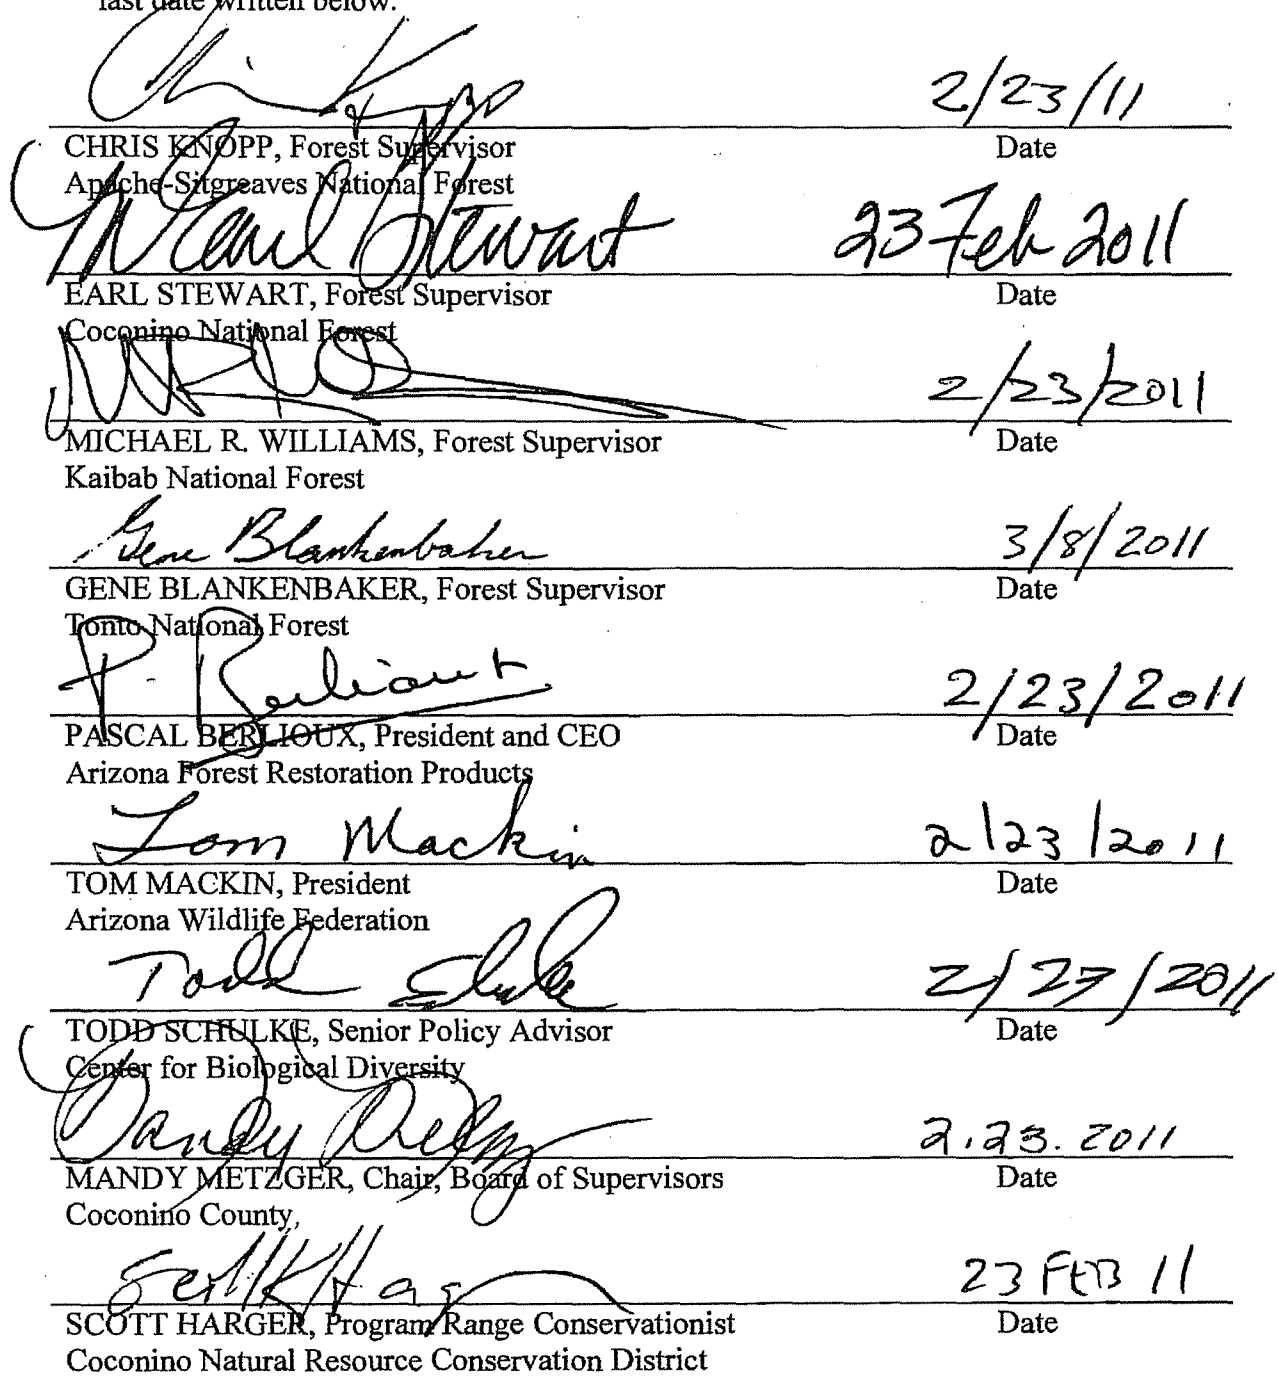 last date written below.
Chris Knopp 2/23/11
CHRIS KNOPP, Forest Supervisor Date
Apache-Sitgreaves National Forest
M Earl Stewart 23 Feb 2011
EARL STEWART, Forest Supervisor Date
Coconino National Forest
2/23/2011
MICHAEL R. WILLIAMS, Forest Supervisor Date
Kaibab National Forest
Gene Blankenbaker 3/8/2011
GENE BLANKENBAKER, Forest Supervisor Date
Tonto National Forest
P. Berlioux 2/23/2011
PASCAL BERLIOUX, President and CEO Date
Arizona Forest Restoration Products
Tom Mackin 2/23/2011
TOM MACKIN, President Date
Arizona Wildlife Federation
Todd Schulke 2/23/2011
TODD SCHULKE, Senior Policy Advisor Date
Center for Biological Diversity
Mandy Metzger 2.23.2011
MANDY METZGER, Chair, Board of Supervisors Date
Coconino County,
23 FEB 11
SCOTT HARGER, Program Range Conservationist Date
Coconino Natural Resource Conservation District